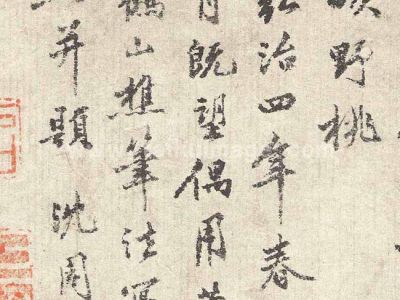 野桃
弘治四年春
月既望偶用黃
鶴山樵筆法寫
并題 沈周